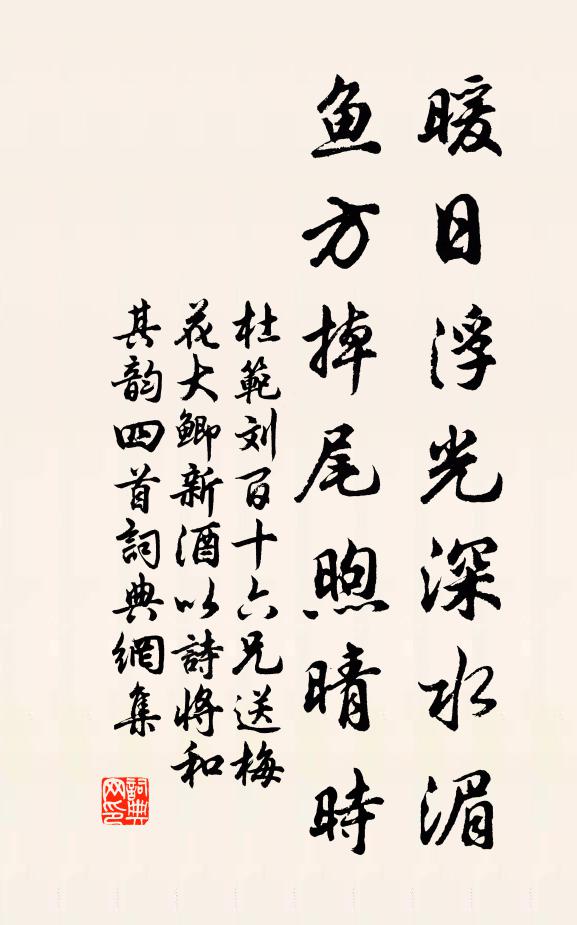 暖日浮光深水湄
鱼方掉尾煦晴時
杜範刘百十六兄送梅
花大鲫新酒以詩将和
其韵四首詞典網集
詞典网印